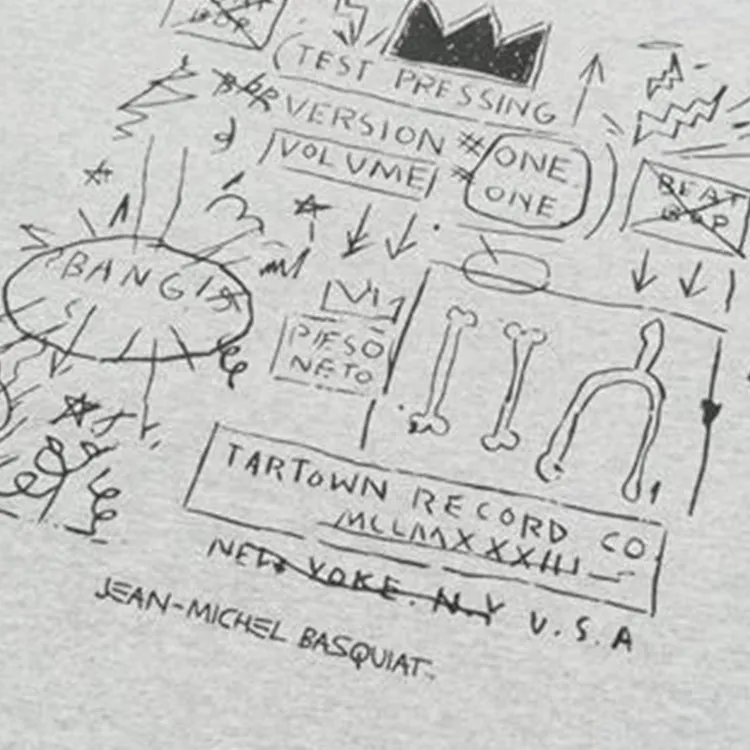 BOP
TEST PRESSING
VERSION #
VOLUME #
ONE
ONE
BEAT
BOP
BANG!
PIESO
NETO
TARTOWN RECORD CO.
MCLMXXXIII
NEW YORK. N.Y U.S.A
JEAN-MICHEL BASQUIAT.